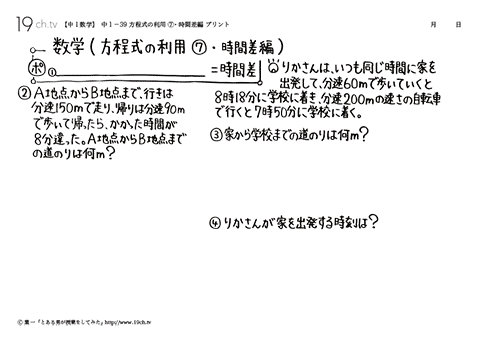 19ch.tv 【中1数学】 中1-39 方程式の利用⑦・時間差編 プリント 月 日
数学(方程式の利用⑦・時間差編)
ポ ① =時間差
②A地点からB地点まで、行きは
分速150mで走り、帰りは分速90m
で歩いて帰ったら、かかった時間が
8分違った。A地点からB地点まで
の道のりは何m?
りかさんは、いつも同じ時間に家を
出発して、分速60mで歩いていくと
8時18分に学校に着き、分速200mの速さの自転車
で行くと7時50分に学校に着く。
③家から学校までの道のりは何m?
④りかさんが家を出発する時刻は?
© 葉一「とある男が授業をしてみた」http://www.19ch.tv